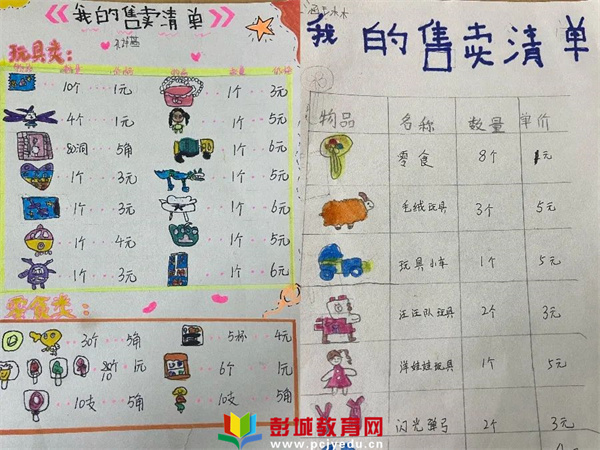 《我的售卖清单》
玩具类：
10个 1元 1个 3元
4个 1元 1个 5元
80洞 5角 1个 6元
1个 3元 1个 5元
1个 3元 1个 6元
1个 4元 1个 5元
1个 3元 1个 6元
零食类：
30个 5角 5杯 4元
10 1元 6个 1元
10支 5角 10支 5角
我的售卖清单
物品 名称 数量 单价
零食 8个 1元
毛绒玩具 3个 5元
玩具小车 1个 5元
汪汪队玩具 2个 3元
洋娃娃玩具 1个 5元
闪光弹弓 2个 3元
彭城教育网
www.pcjyedu.cn